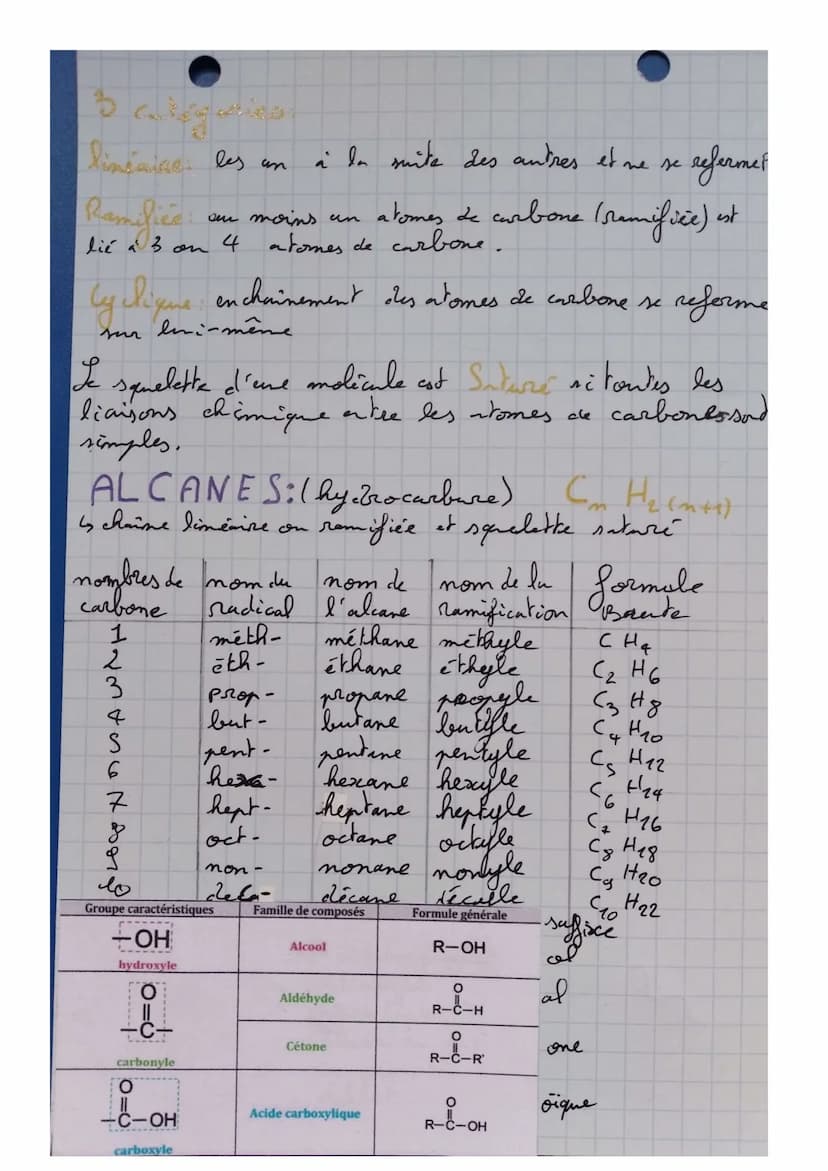 3 catégories:
linéaire: les un à la suite des autres et ne se referment
Ramifiée: au moins un atomes de carbone (ramifiée) est
lié à 3 ou 4 atomes de carbone.
Cyclique: enchaînement des atomes de carbone se referme
sur lui-même
Le squelette d'une molécule est Saturé si toutes les
liaisons chimique entre les atomes de carbones sont
simples.
ALCANES: (hydrocarbure) Cn H2(n+1)
↳ chaîne linéaire ou ramifiée et squelette saturé
nombres de carbone | nom du radical | nom de l'alcane | nom de la ramification | formule Baute
1 méth- méthane méthyle CH4
2 éth- éthane éthyle C2 H6
3 prop- propane propyle C3 H8
4 but- butane butyle C4 H10
5 pent- pentane pentyle C5 H12
6 hexa- hexane hexyle C6 H14
7 hept- heptane heptyle C7 H16
8 oct- octane octyle C8 H18
9 non- nonane nonyle C9 H20
10 deca- décane C10 H22
Groupe caractéristiques | Famille de composés | Formule générale | suffixe
-OH hydroxyle | Alcool | R-OH | ol
O
-C-
carbonyle
Aldéhyde
O
R-C-H
al
Cétone
O
R-C-R'
one
O
-C-OH
carboxyle
Acide carboxylique
O
R-C-OH
oïque